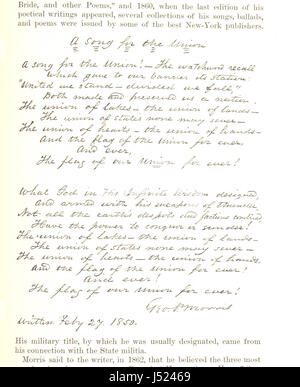 Bride, and Other Poems," and 1860, when the last edition of his
poetical writings appeared, several collections of his songs, ballads,
and poems were issued by some of the best New-York publishers.
A Song for the Union
A song for the Union! – The watchword recall
which gave to our banner its station:
"United we stand – divided we fall,"
Both made and preserves us a nation.
The union of lakes – the union of lands –
The union of states none may sever –
The union of hearts – the union of hands –
And the flag of the Union for ever
And ever,
The flag of our Union for ever!
What God in His Infinite Wisdom designed,
And armed with his weapons of thunder,
Not all the earth's despots and factions combined
Have the power to conquer or sunder!
The union of lakes – the union of lands –
The union of states none may sever –
The union of hearts – the union of hands –
And the flag of the Union for ever!
And ever!
The flag of our Union for ever!
Geo. P. Morris
Written Feby 27. 1850.
His military title, by which he was usually designated, came from
his connection with the State militia.
Morris said to the writer, in 1862, that he believed the three most
alamy
J52469